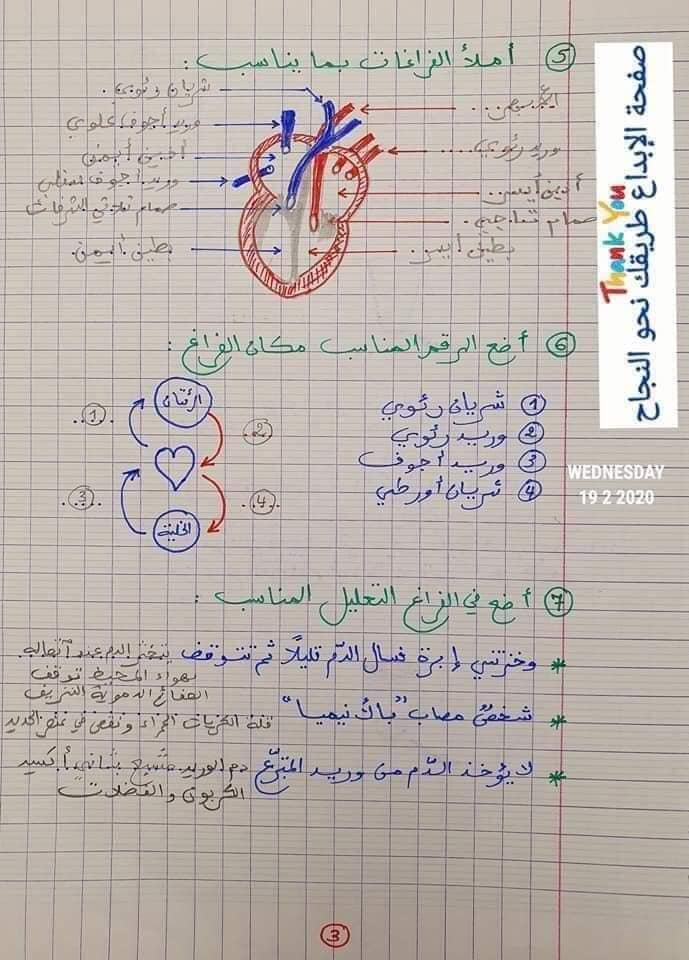 ⑤ أملأ الفراغات بما يناسب :
شريان رئوي
الأبهر
وريد أجوف علوي
وريد رئوي
أذين أيمن
وريد أجوف سفلي
أذين أيسر
صمام ثلاثي الشرفات
صمام تاجي
بطين أيمن
بطين أيسر
⑥ أضع الرقم المناسب مكان الفراغ :
الرئتان
① شريان رئوي
② وريد رئوي
③ وريد أجوف
④ شريان أورطي
①
②
③
④
الخلية
⑦ أضع في الفراغ التعليل المناسب :
* وخزتني إبرة فسال الدّم قليلًا ثم توقف يتخثر الدم عند اتصاله
بهواء المحيط توقف
الصفائح الدموية النزيف
* شخصٌ مصاب "بالأنيميا" قلة الكريات الحمراء ونقص في عنصر الحديد
* لا يؤخذ الدّم من وريد المتبرّع دم الوريد متشبع بثاني أكسيد
الكربون والفضلات
③
صفحة الإبداع طريقك نحو النجاح
Thank You
WEDNESDAY
19 2 2020